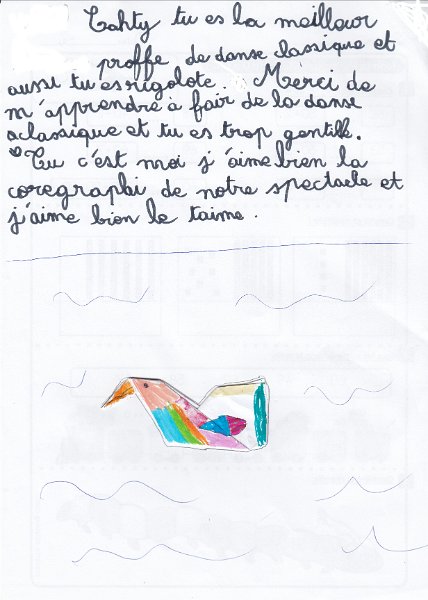 Cahty tu es la meilleur
proffe de danse classique et
aussi tu es rigolote. Merci de
m'apprendre à fair de la danse
classique et tu es trop gentille.
Tu c'est moi j'aime bien la
coregraphi de notre spectacle et
j'aime bien le taime.